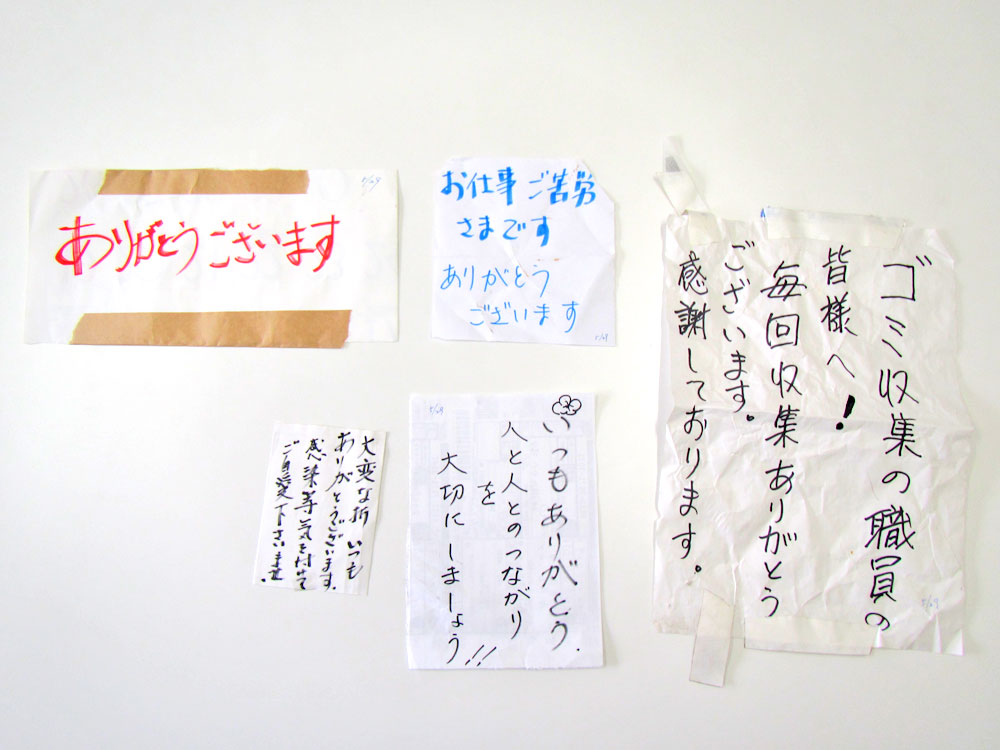 ありがとうございます
お仕事ご苦労
さまです
ありがとう
ございます
ゴミ収集の職員の
皆様へ!
毎回収集ありがとう
ございます。
感謝しております。
大変な折 いつも
ありがとうございます。
感染等気を付けて
ご自愛下さいませ。
いつもありがとう.
人と人とのつながり
を
大切にしましょう!!